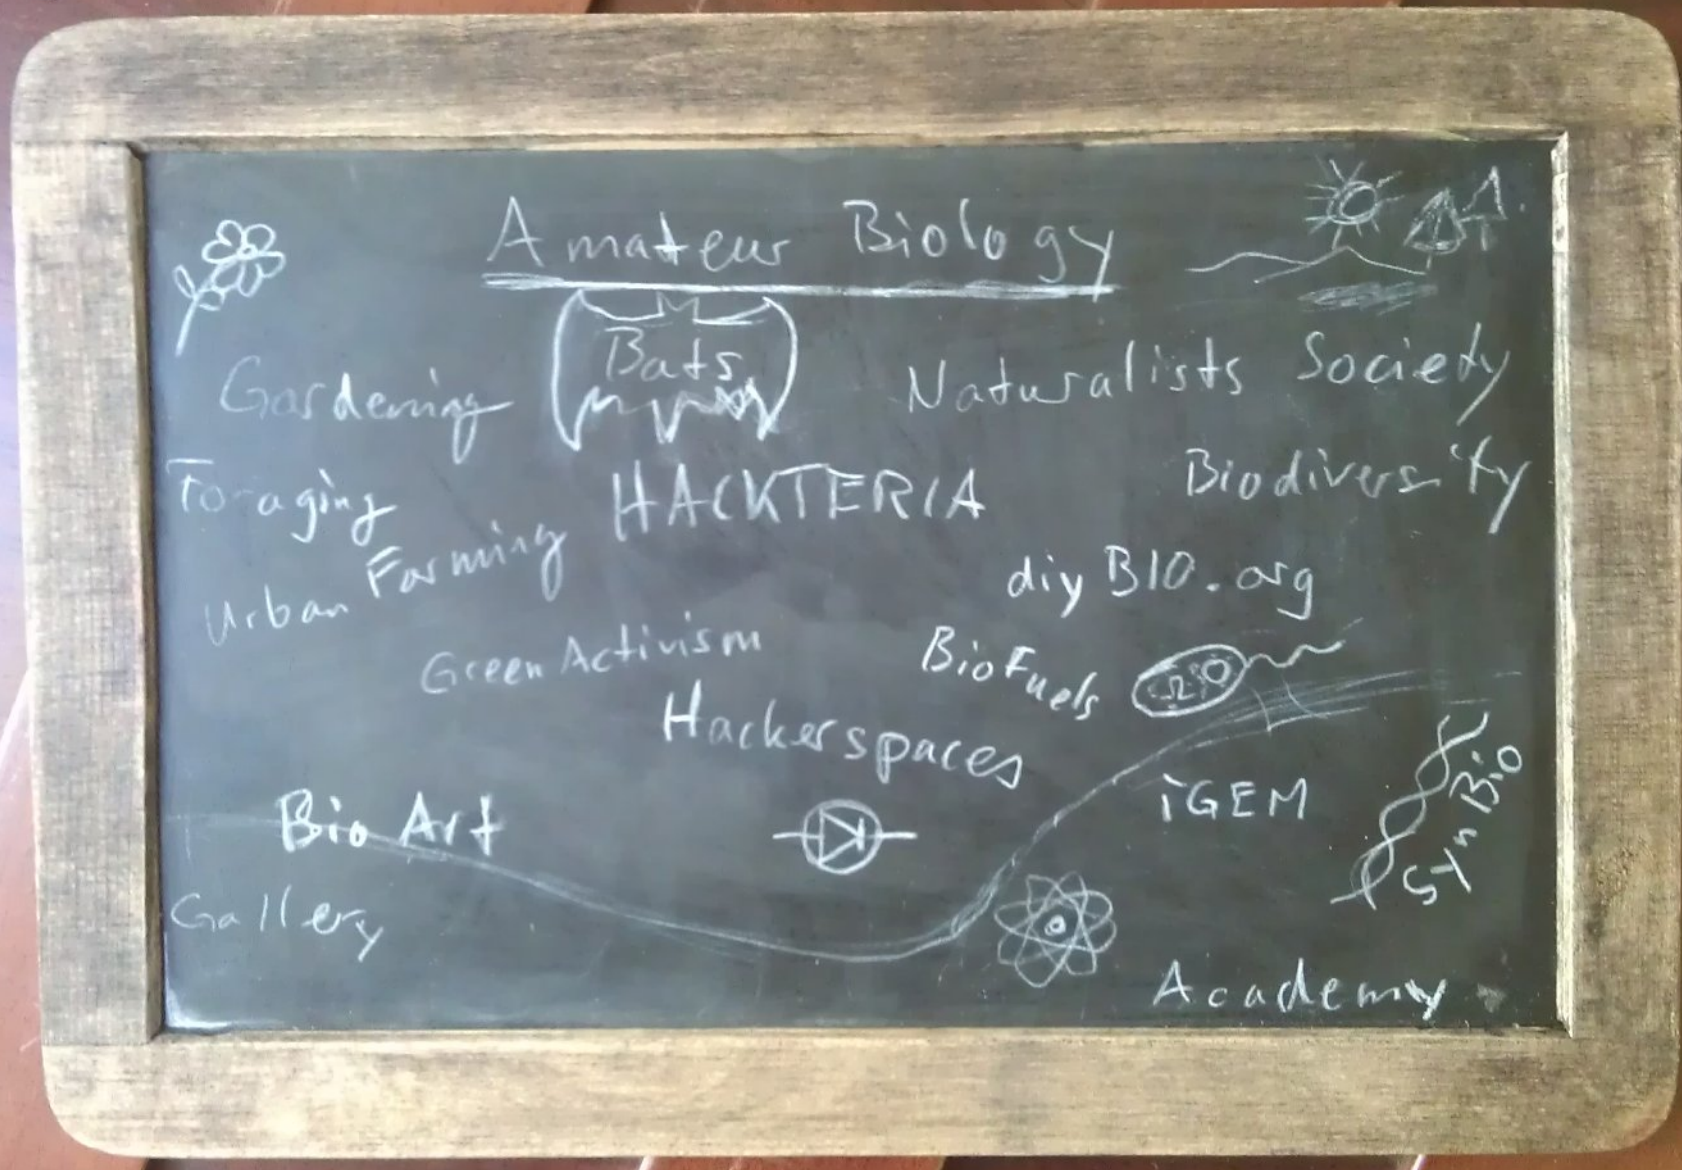 Amateur Biology
Bats
Gardening
Naturalists Society
Foraging
HACKTERIA
Biodiversity
Urban Farming
diyBIO.org
Green Activism
BioFuels
Hackerspaces
iGEM
SynBio
Bio Art
Gallery
Academy